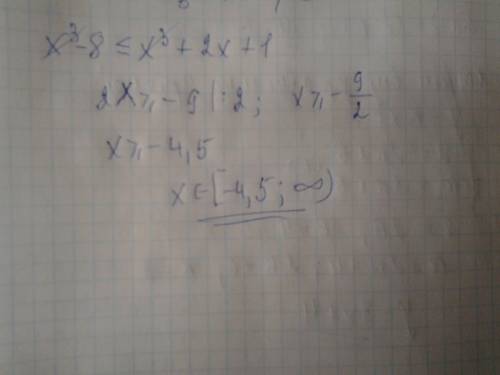 x³-8 ≤ x³+2x+1
2x ≥ -9 |:2; x ≥ -9/2
x ≥ -4,5
x ∈ [-4,5; ∞)